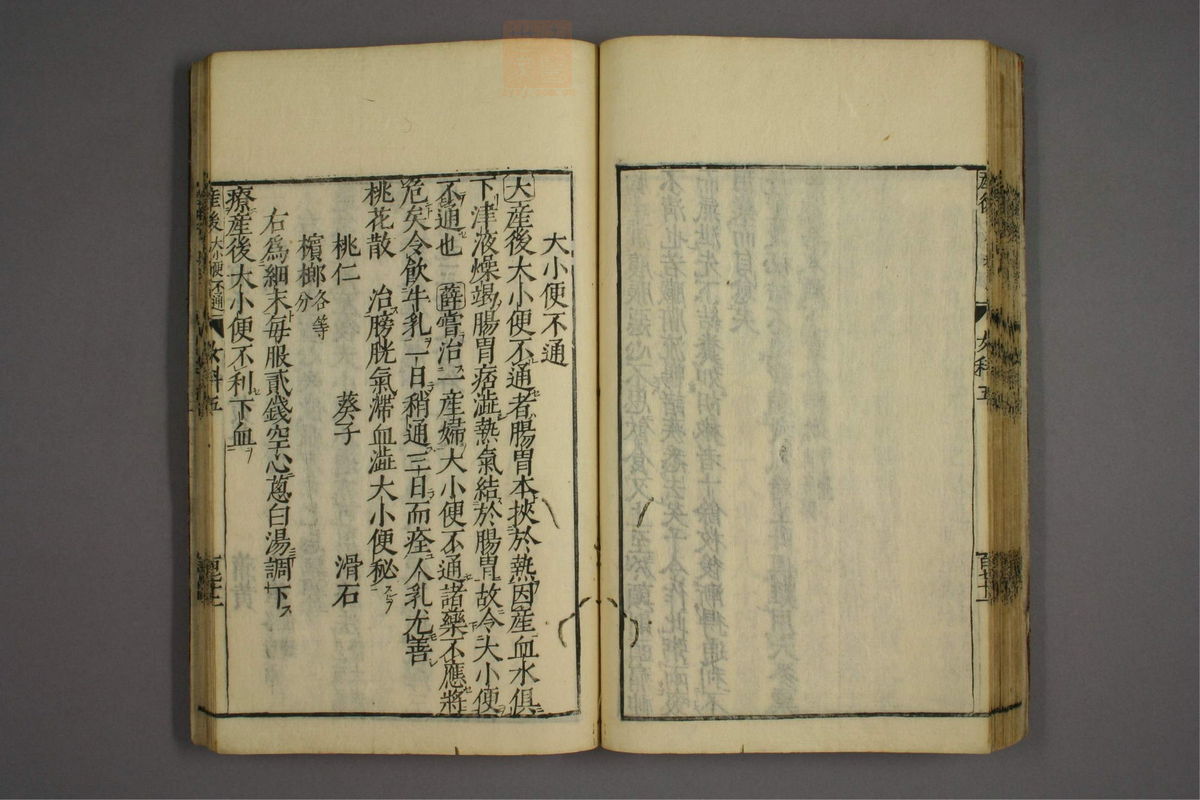 大小便不通
大産後大小便不通者腸胃本挾於熱因産血水俱
下津液燥竭腸胃痞澁熱氣結於腸胃故令大小便
不通也 薛嘗治一産婦大小便不通諸藥不應將
危矣令飲牛乳一日稍通三日而痊人乳尤善
桃花散 治膀胱氣滯血澁大小便秘
桃仁 葵子 滑石
檳榔各等分
右爲細末毎服貳錢空心葱白湯調下
療産後大小便不利下血
産後 大小便不通 女科五